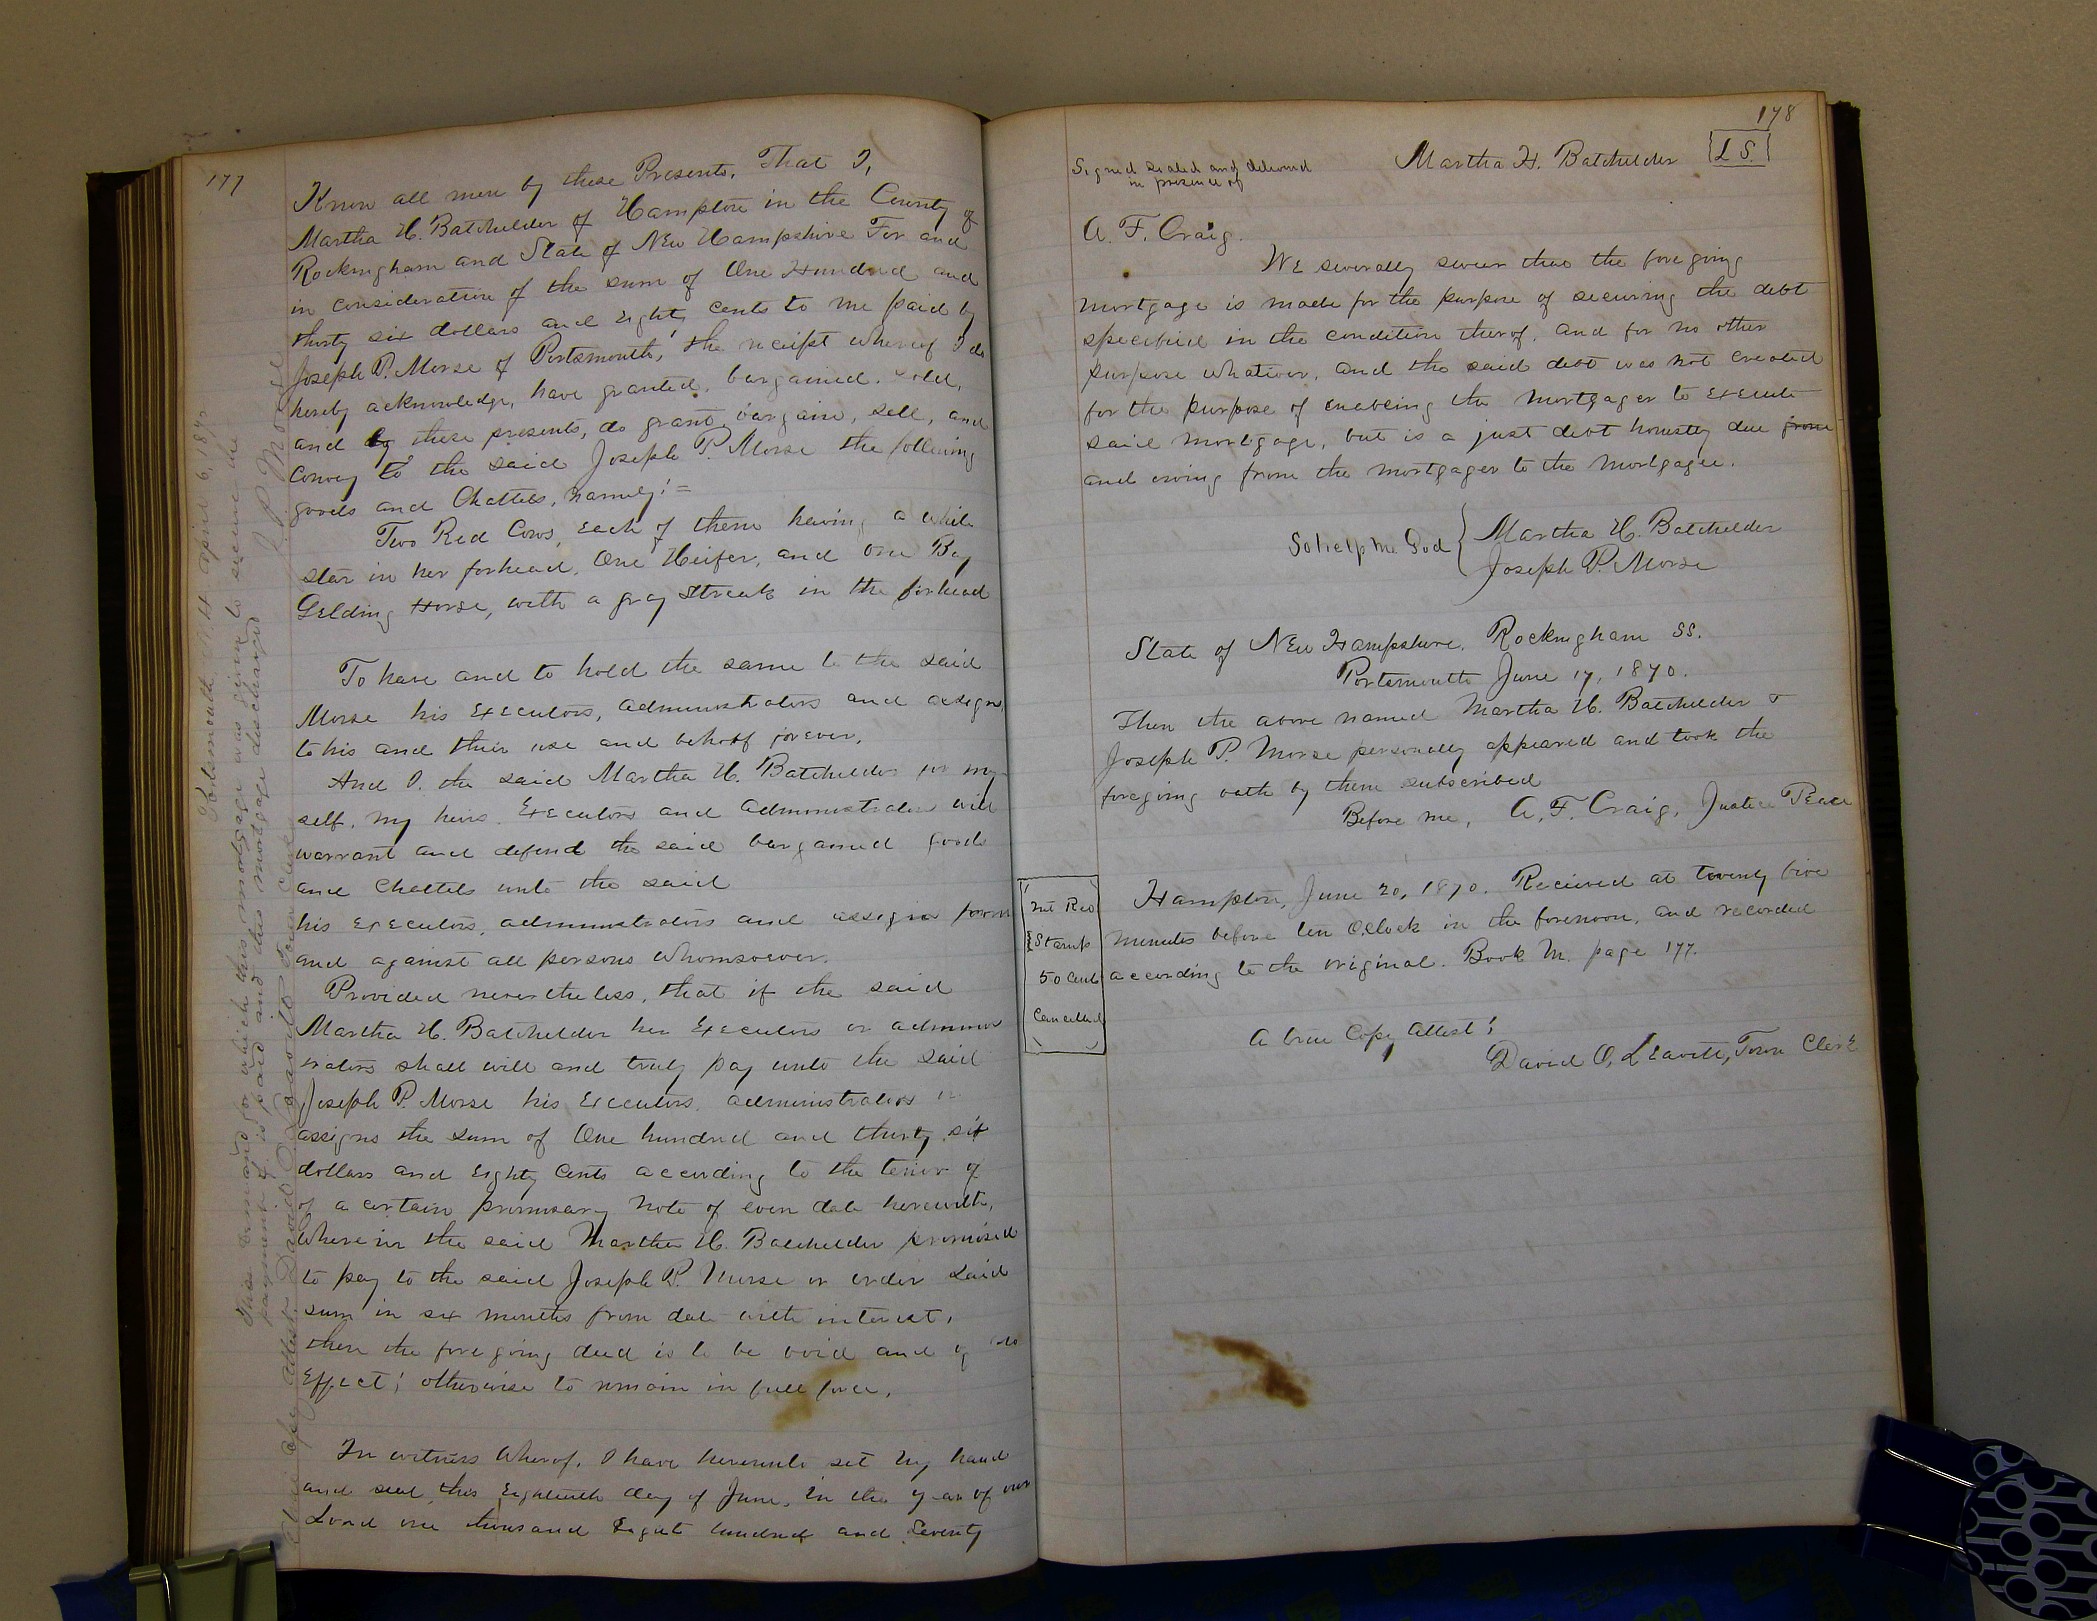 177
Know all men by these Presents, That I,
Martha H. Batchelder of Hampton in the County of
Rockingham and State of New Hampshire For and
in consideration of the sum of One Hundred and
thirty six dollars and eighty cents to me paid by
Joseph P. Morse of Portsmouth, the receipt whereof I do
hereby acknowledge, have granted, bargained, sold,
and by these presents, do grant, bargain, sell, and
convey to the said Joseph P. Morse the following
goods and Chattels, namely:=
Two Red Cows, each of them having a white
star in her forhead, One Heifer, and one Bay
Gelding Horse, with a gray streak in the forhead
To have and to hold the same to the said
Morse his Executors, administrators and assigns,
to his and their use and behoof forever.
And I, the said Martha H. Batchelder for my
self, my heirs Executors and administrators will
warrant and defend the said bargained goods
and Chattels unto the said
his executors, administrators and assigns from
and against all persons Whomsoever.
Provided nevertheless, that if the said
Martha H. Batchelder her Executors or adminis
trators shall will and truly pay unto the said
Joseph P. Morse his Executors, administrators or
assigns the sum of One hundred and thirty six
dollars and Eighty Cents according to the tenor of
of a certain promissary note of even date herewith,
Wherein the said Martha H. Batchelder promised
to pay to the said Joseph P. Morse or order said
sum in six months from date with interest,
then the foregoing deed is to be void and of no
Effect; otherwise to remain in full force.
In witness Wherof, I have hereunto set my hand
and seal this Eighteenth day of June, in the year of our
Lord one thousand Eight hundred and Seventy
Portsmouth N.H. April 6, 187
The demand for which this mortgage was given to secure the
payment of is paid and this mortgage discharged
J. P. Morse
A true Copy Attest: David O. Leavitt Town Clerk
178
Martha H. Batchelder [L S.]
Signed sealed and delivered
in presence of
A. F. Craig.
We severally swear that the foregoing
mortgage is made for the purpose of securing the debt
specified in the condition therof, and for no other
purpose whatever, and the said debt was not created
for the purpose of enabeing the mortgager to execute
said mortgage, but is a just debt honestly due from
and owing from the mortgager to the mortgagee.
So help me God { Martha H. Batchelder
Joseph P. Morse
State of New Hampshire. Rockingham SS.
Portsmouth June 17, 1870.
Then the above named Martha H. Batchelder &
Joseph P. Morse personally appeared and took the
foregoing oath by them subscribed
Before me, A. F. Craig, Justice Peace
Int Rev
Stamp
50 Cents
Cancelled
Hampton, June 20, 1870. Recieved at twenty five
minutes before ten O,Clock in the forenoon, and recorded
according to the original. Book M. page 177.
A true Copy Attest;
David O. Leavitt, Town Clerk